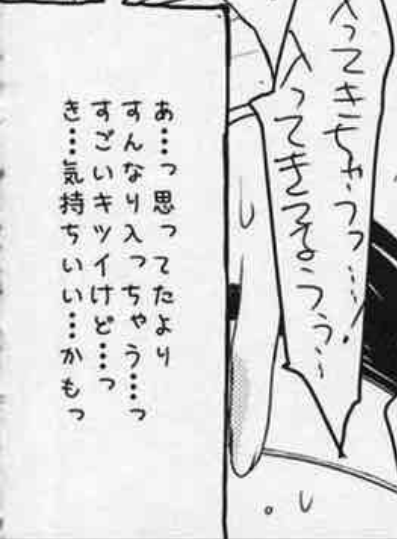 入ってきちゃうっ…！
入ってきてるううぅ〜
あ…っ思ってたより
すんなり入っちゃう…っ
すごいキツイけど…っ
き…気持ちいい…かもっ